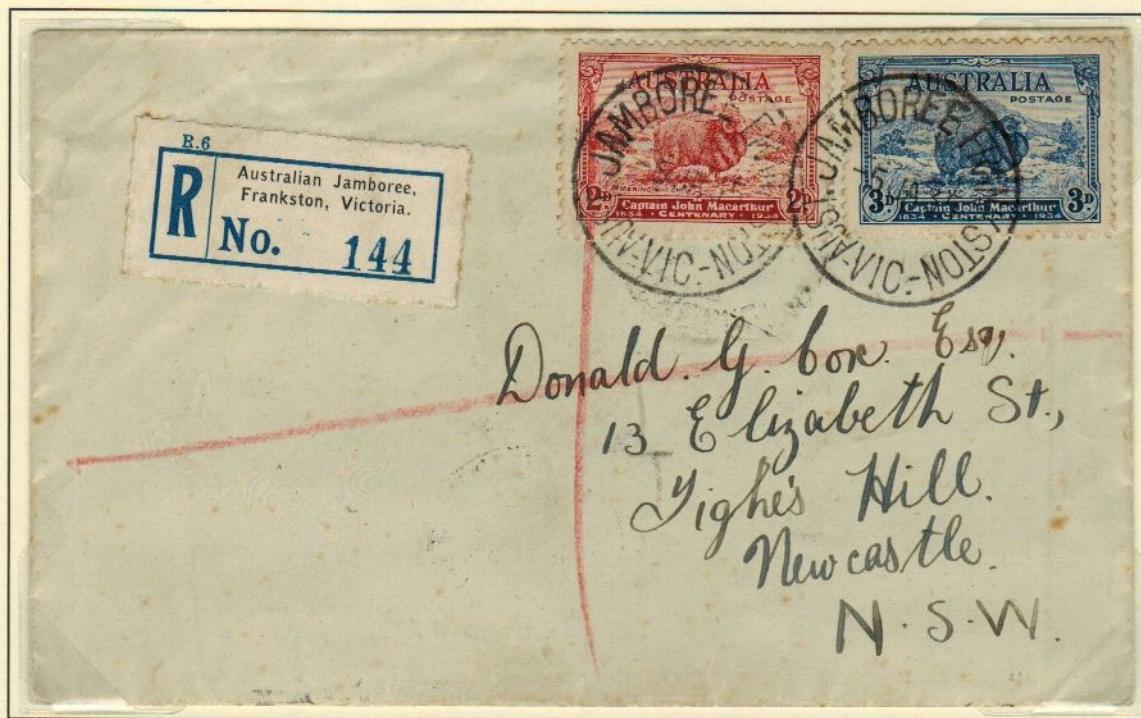 R.6
R
Australian Jamboree,
Frankston, Victoria.
No. 144
AUSTRALIA
POSTAGE
2D 2D
Captain John Macarthur
1834 CENTENARY 1934
AUSTRALIA
POSTAGE
3D 3D
Captain John Macarthur
1834 CENTENARY 1934
JAMBOREE
VIC-AUST
JAMBOREE
VIC-AUST
Donald. G. Cox. Esq.
13 Elizabeth St.,
Tighe's Hill.
Newcastle.
N.S.W.